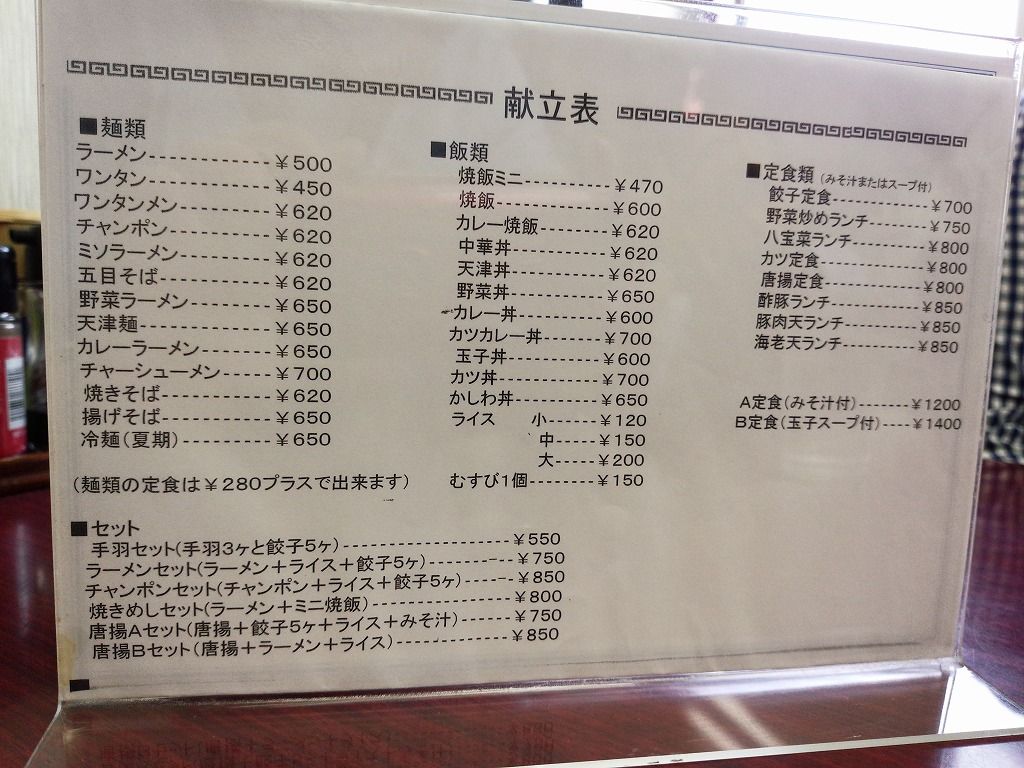 献立表
■麺類
ラーメン-----------￥500
ワンタン-----------￥450
ワンタンメン--------￥620
チャンポン---------￥620
ミソラーメン--------￥620
五目そば----------￥620
野菜ラーメン-------￥650
天津麺-----------￥650
カレーラーメン------￥650
チャーシューメン-----￥700
焼きそば----------￥620
揚げそば----------￥650
冷麺(夏期)--------￥650
(麺類の定食は￥280プラスで出来ます)
■飯類
焼飯ミニ----------￥470
焼飯------------￥600
カレー焼飯--------￥620
中華丼----------￥620
天津丼----------￥620
野菜丼----------￥650
カレー丼---------￥600
カツカレー丼-------￥700
玉子丼----------￥600
カツ丼-----------￥700
かしわ丼---------￥650
ライス 小-----￥120
中-----￥150
大-----￥200
むすび1個--------￥150
■定食類(みそ汁またはスープ付)
餃子定食-----------￥700
野菜炒めランチ-------￥750
八宝菜ランチ--------￥800
カツ定食-----------￥800
唐揚定食-----------￥800
酢豚ランチ----------￥850
豚肉天ランチ--------￥850
海老天ランチ--------￥850
A定食(みそ汁付)------￥1200
B定食(玉子スープ付)----￥1400
■セット
手羽セット(手羽3ヶと餃子5ヶ)------------------￥550
ラーメンセット(ラーメン+ライス+餃子5ヶ)---------￥750
チャンポンセット(チャンポン+ライス+餃子5ヶ)------￥850
焼きめしセット(ラーメン+ミニ焼飯)---------------￥800
唐揚Aセット(唐揚+餃子5ヶ+ライス+みそ汁)------￥750
唐揚Bセット(唐揚+ラーメン+ライス)-------------￥850